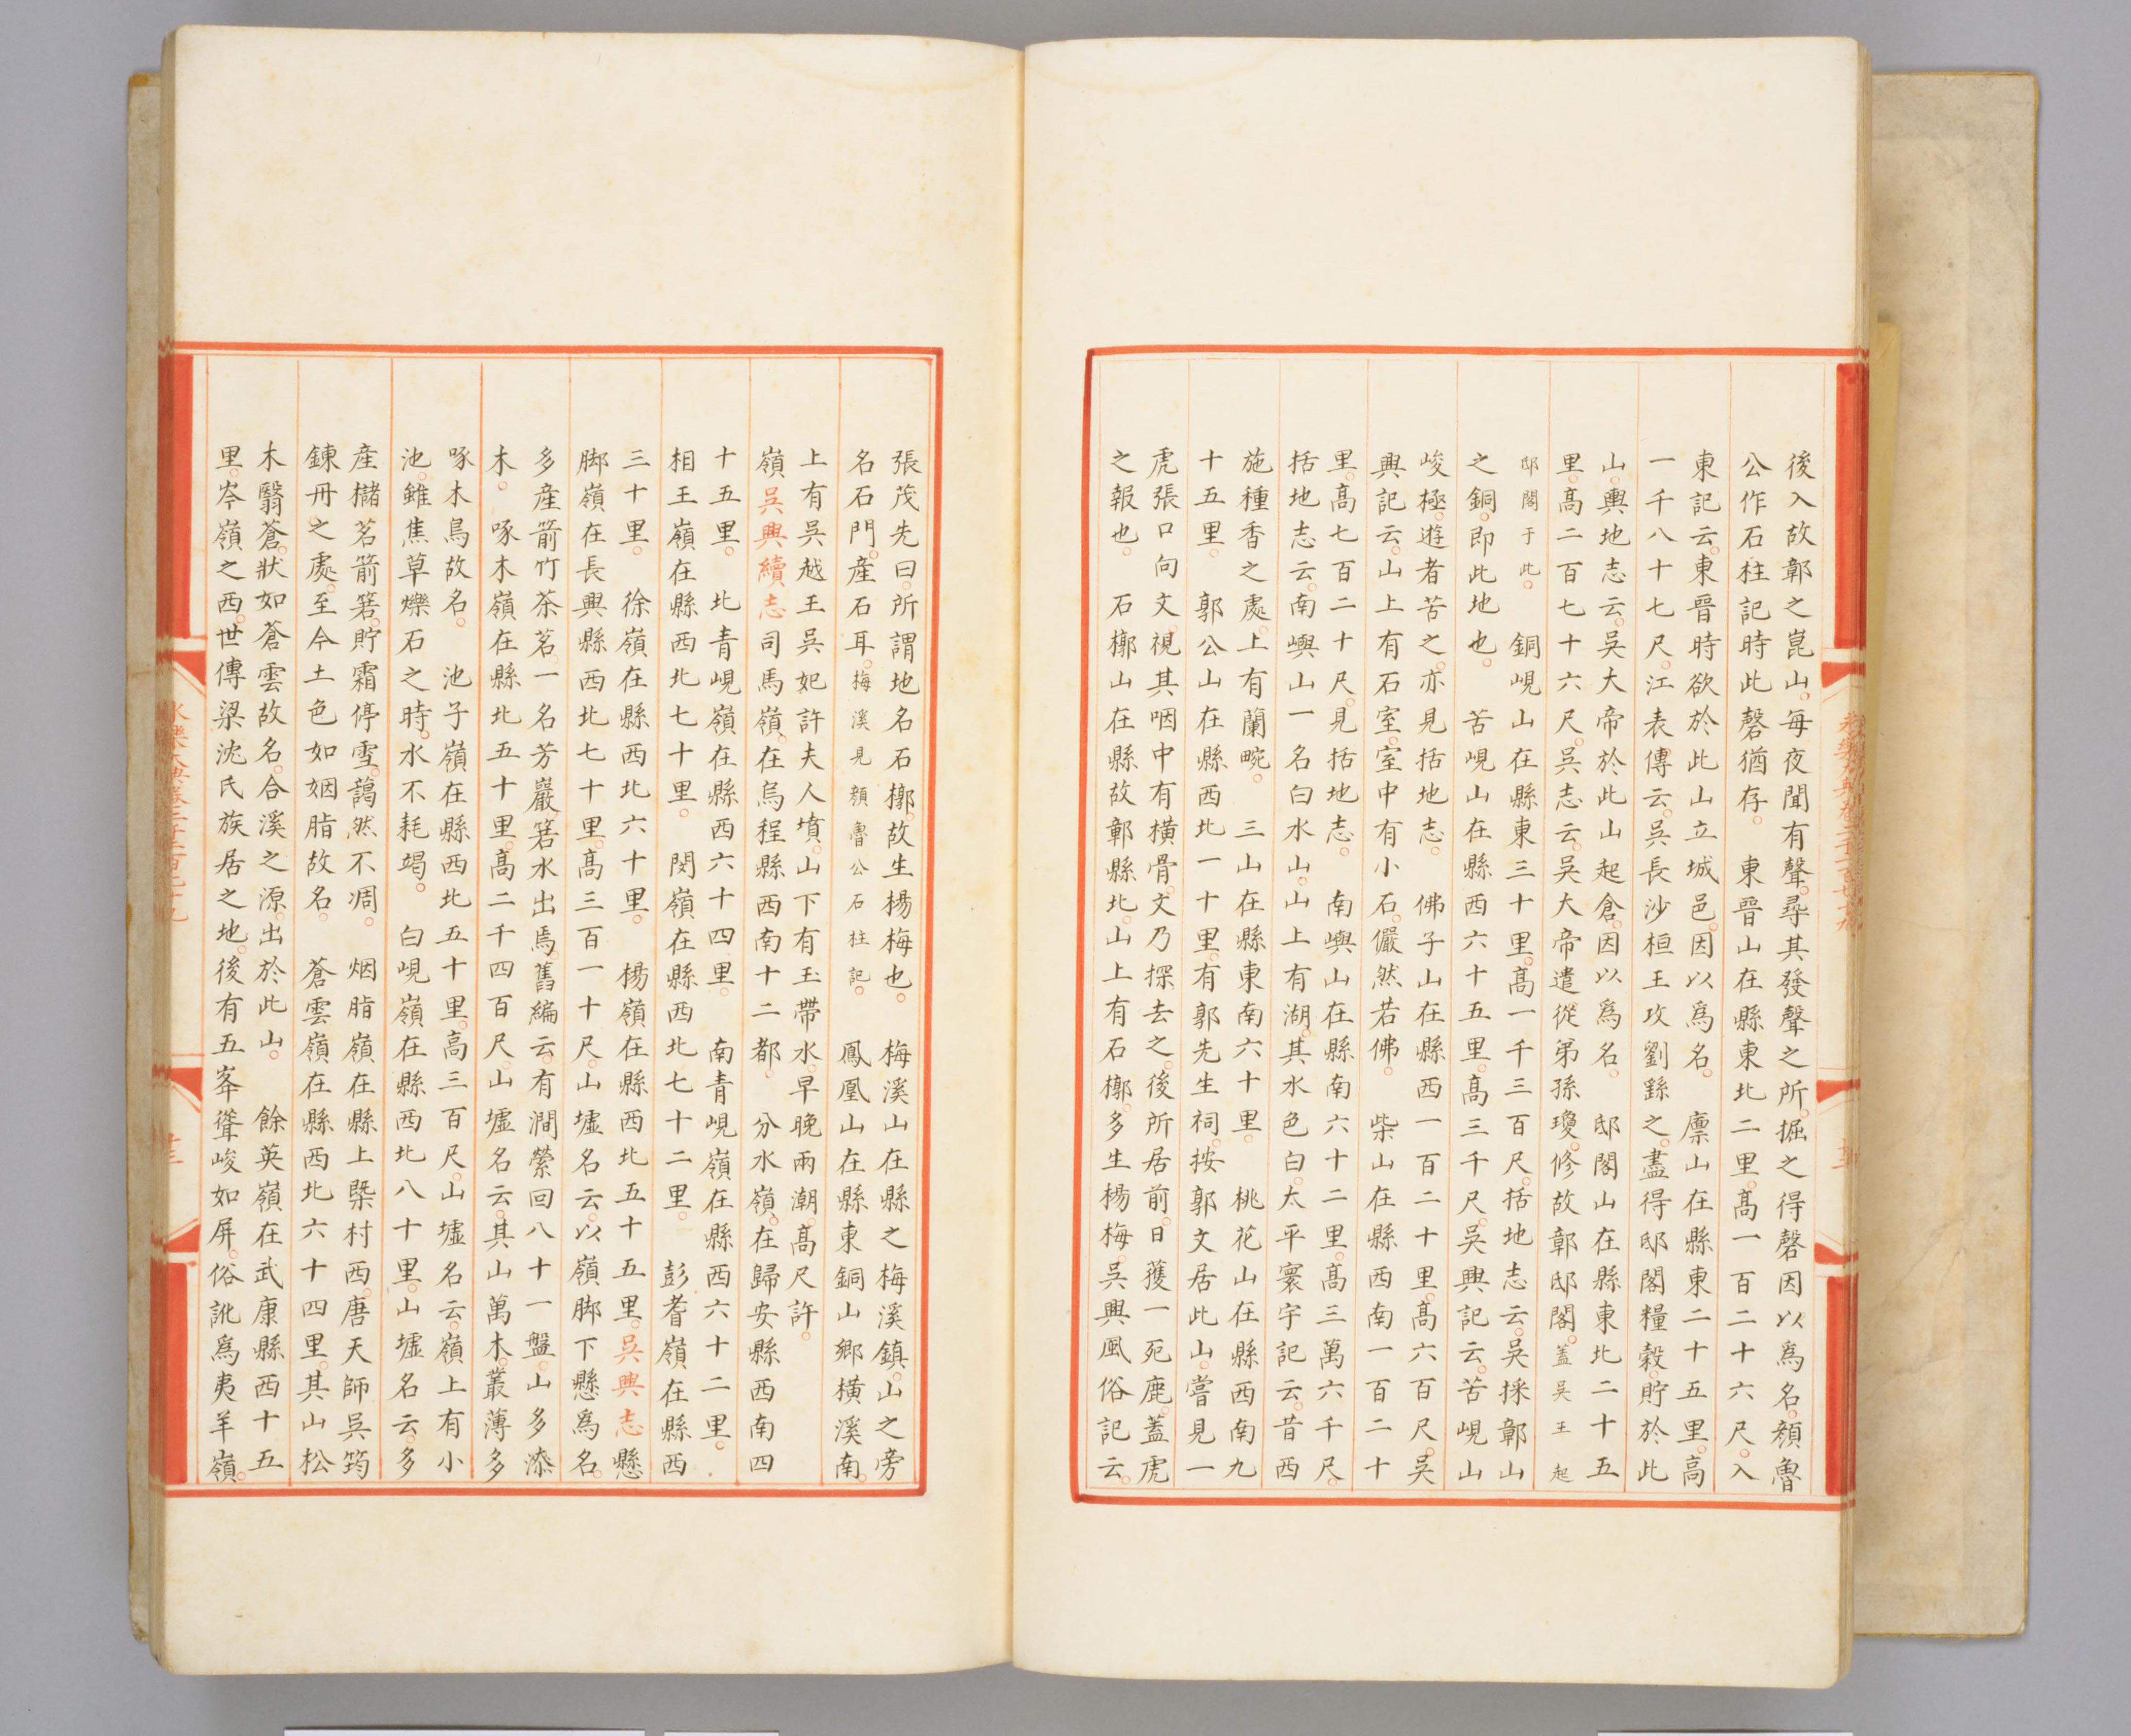 後入故鄣之崑山。每夜聞有聲。尋其發聲之所。掘之得磬因以爲名。顏魯
公作石柱記時此磬猶存。　東晉山在縣東北二里。高一百二十六尺。入
東記云。東晉時欲於此山立城邑。因以爲名。　廪山在縣東二十五里。高
一千八十七尺。江表傳云。吳長沙桓王攻劉繇之。盡得邸閣糧穀。貯於此
山。輿地志云。吳大帝於此山起倉。因以爲名。　邸閣山在縣東北二十五
里。高二百七十六尺。吳志云。吳大帝遣從弟孫瓊。修故鄣邸閣。蓋吳王起
邸閣于此。　銅峴山在縣東三十里。高一千三百尺。括地志云。吳採鄣山
之銅。即此地也。　苦峴山在縣西六十五里。高三千尺。吳興記云。苦峴山
峻極。遊者苦之。亦見括地志。　佛子山在縣西一百二十里。高六百尺。吳
興記云。山上有石室。室中有小石。儼然若佛。　柴山在縣西南一百二十
里。高七百二十尺。見括地志。　南嶼山在縣南六十二里。高三萬六千尺。
括地志云。南嶼山一名白水山。山上有湖。其水色白。太平寰宇記云。昔西
施種香之處。上有蘭畹。　三山在縣東南六十里。　桃花山在縣西南九
十五里。　郭公山在縣西北一十里。有郭先生祠。按郭文居此山。嘗見一
虎張口向文。視其咽中有橫骨。文乃探去之。後所居前。日獲一死鹿。蓋虎
之報也。　石槨山在縣故鄣縣北。山上有石槨。多生楊梅。吳興風俗記云。
張茂先曰。所謂地名石槨。故生楊梅也。　梅溪山在縣之梅溪鎮。山之旁
名石門。產石耳。梅溪見顏魯公石柱記。　鳳凰山在縣東銅山鄉橫溪南。
上有吳越王吳妃許夫人墳。山下有玉帶水。早晚兩潮。高尺許。
嶺吳興續志司馬嶺。在烏程縣西南十二都。　分水嶺。在歸安縣西南四
十五里。　北青峴嶺在縣西六十四里。　南青峴嶺在縣西六十二里。
相王嶺在縣西北七十里。　閔嶺在縣西北七十二里。　彭耆嶺在縣西
三十里。　徐嶺在縣西北六十里。　楊嶺在縣西北五十五里。吳興志懸
脚嶺在長興縣西北七十里。高三百一十尺。山墟名云。以嶺脚下懸爲名。
多產箭竹茶茗。一名芳巖。箬水出焉。舊編云。有澗縈回八十一盤。山多漆
木。　啄木嶺在縣北五十里。高二千四百尺。山墟名云。其山萬木。叢薄多
啄木鳥故名。　池子嶺在縣西北五十里。高三百尺。山墟名云。嶺上有小
池。雖焦草爍石之時。水不耗竭。　白峴嶺在縣西北八十里。山墟名云。多
產櫧茗箭箬。貯霜停雪。藹然不凋。　烟脂嶺在縣上槩村西。唐天師吳筠
鍊丹之處。至今土色如姻脂故名。　蒼雲嶺在縣西北六十四里。其山松
木翳蒼。狀如蒼雲故名。合溪之源。出於此山。　餘英嶺在武康縣西十五
里岑嶺之西。世傳梁沈氏族居之地。後有五峯聳峻如屏。俗訛爲夷羊嶺。
永樂大典卷二千二百七十九